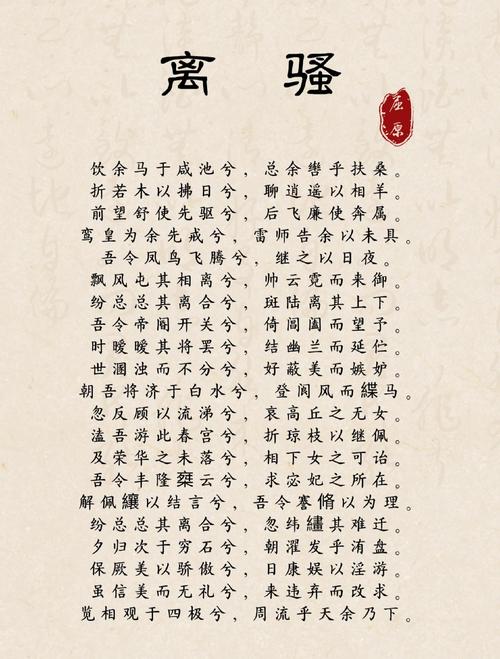 离 骚
屈原
饮余马于咸池兮，总余辔乎扶桑。
折若木以拂日兮，聊逍遥以相羊。
前望舒使先驱兮，后飞廉使奔属。
鸾皇为余先戒兮，雷师告余以未具。
吾令凤鸟飞腾兮，继之以日夜。
飘风屯其相离兮，帅云霓而来御。
纷总总其离合兮，斑陆离其上下。
吾令帝阍开关兮，倚阊阖而望予。
时暧暧其将罢兮，结幽兰而延伫。
世溷浊而不分兮，好蔽美而嫉妒。
朝吾将济于白水兮，登阆风而緤马。
忽反顾以流涕兮，哀高丘之无女。
溘吾游此春宫兮，折琼枝以继佩。
及荣华之未落兮，相下女之可诒。
吾令丰隆椉云兮，求宓妃之所在。
解佩纕以结言兮，吾令蹇脩以为理。
纷总总其离合兮，忽纬繣其难迁。
夕归次于穷石兮，朝濯发乎洧盘。
保厥美以骄傲兮，日康娱以淫游。
虽信美而无礼兮，来违弃而改求。
览相观于四极兮，周流乎天余乃下。